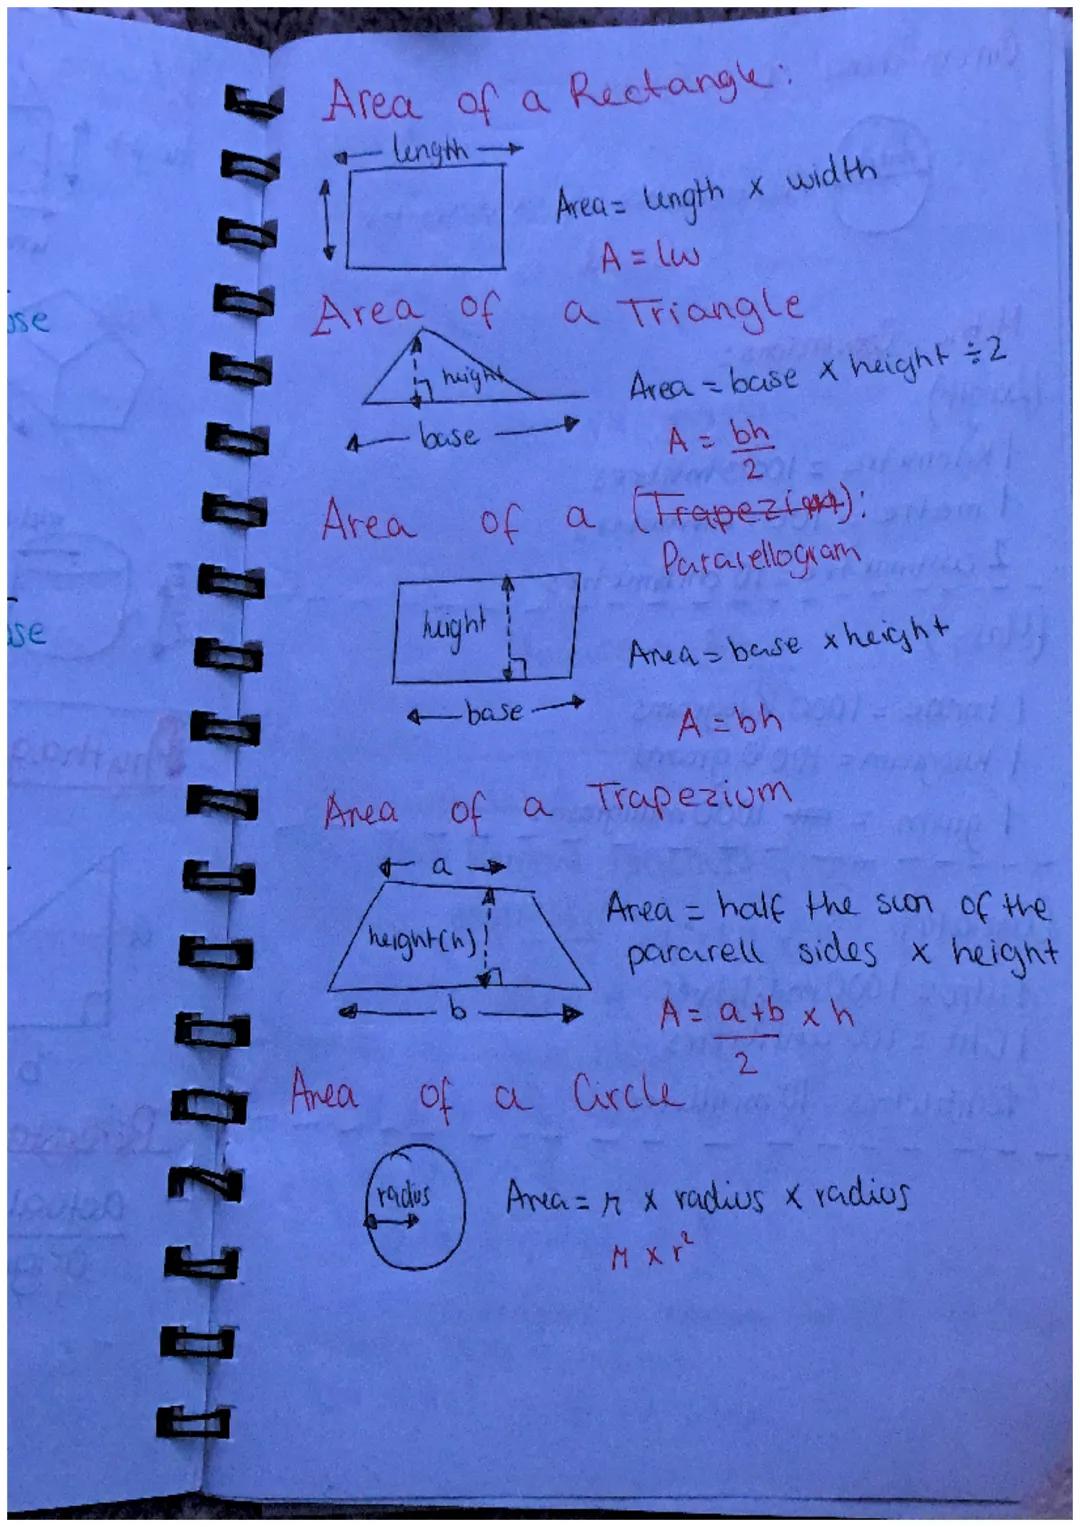 Area of a Rectangle:
length
Area = length x width
A = lw
Area of a Triangle
height
Area = base x height ÷ 2
base
A = bh
2
Area of a (Trapezium):
Pararellogram
height
Area = base x height
base
A = bh
Area of a Trapezium
a
Area = half the sum of the
height(h)
pararell sides x height
b
A = a+b x h
2
Area of a Circle
radius
Area = π x radius x radius
π x r²